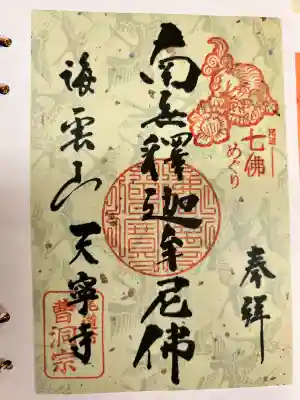 奉拝
尾道
七佛
めぐり
南無釋迦牟尼佛
海雲山 天寧寺
曹洞宗